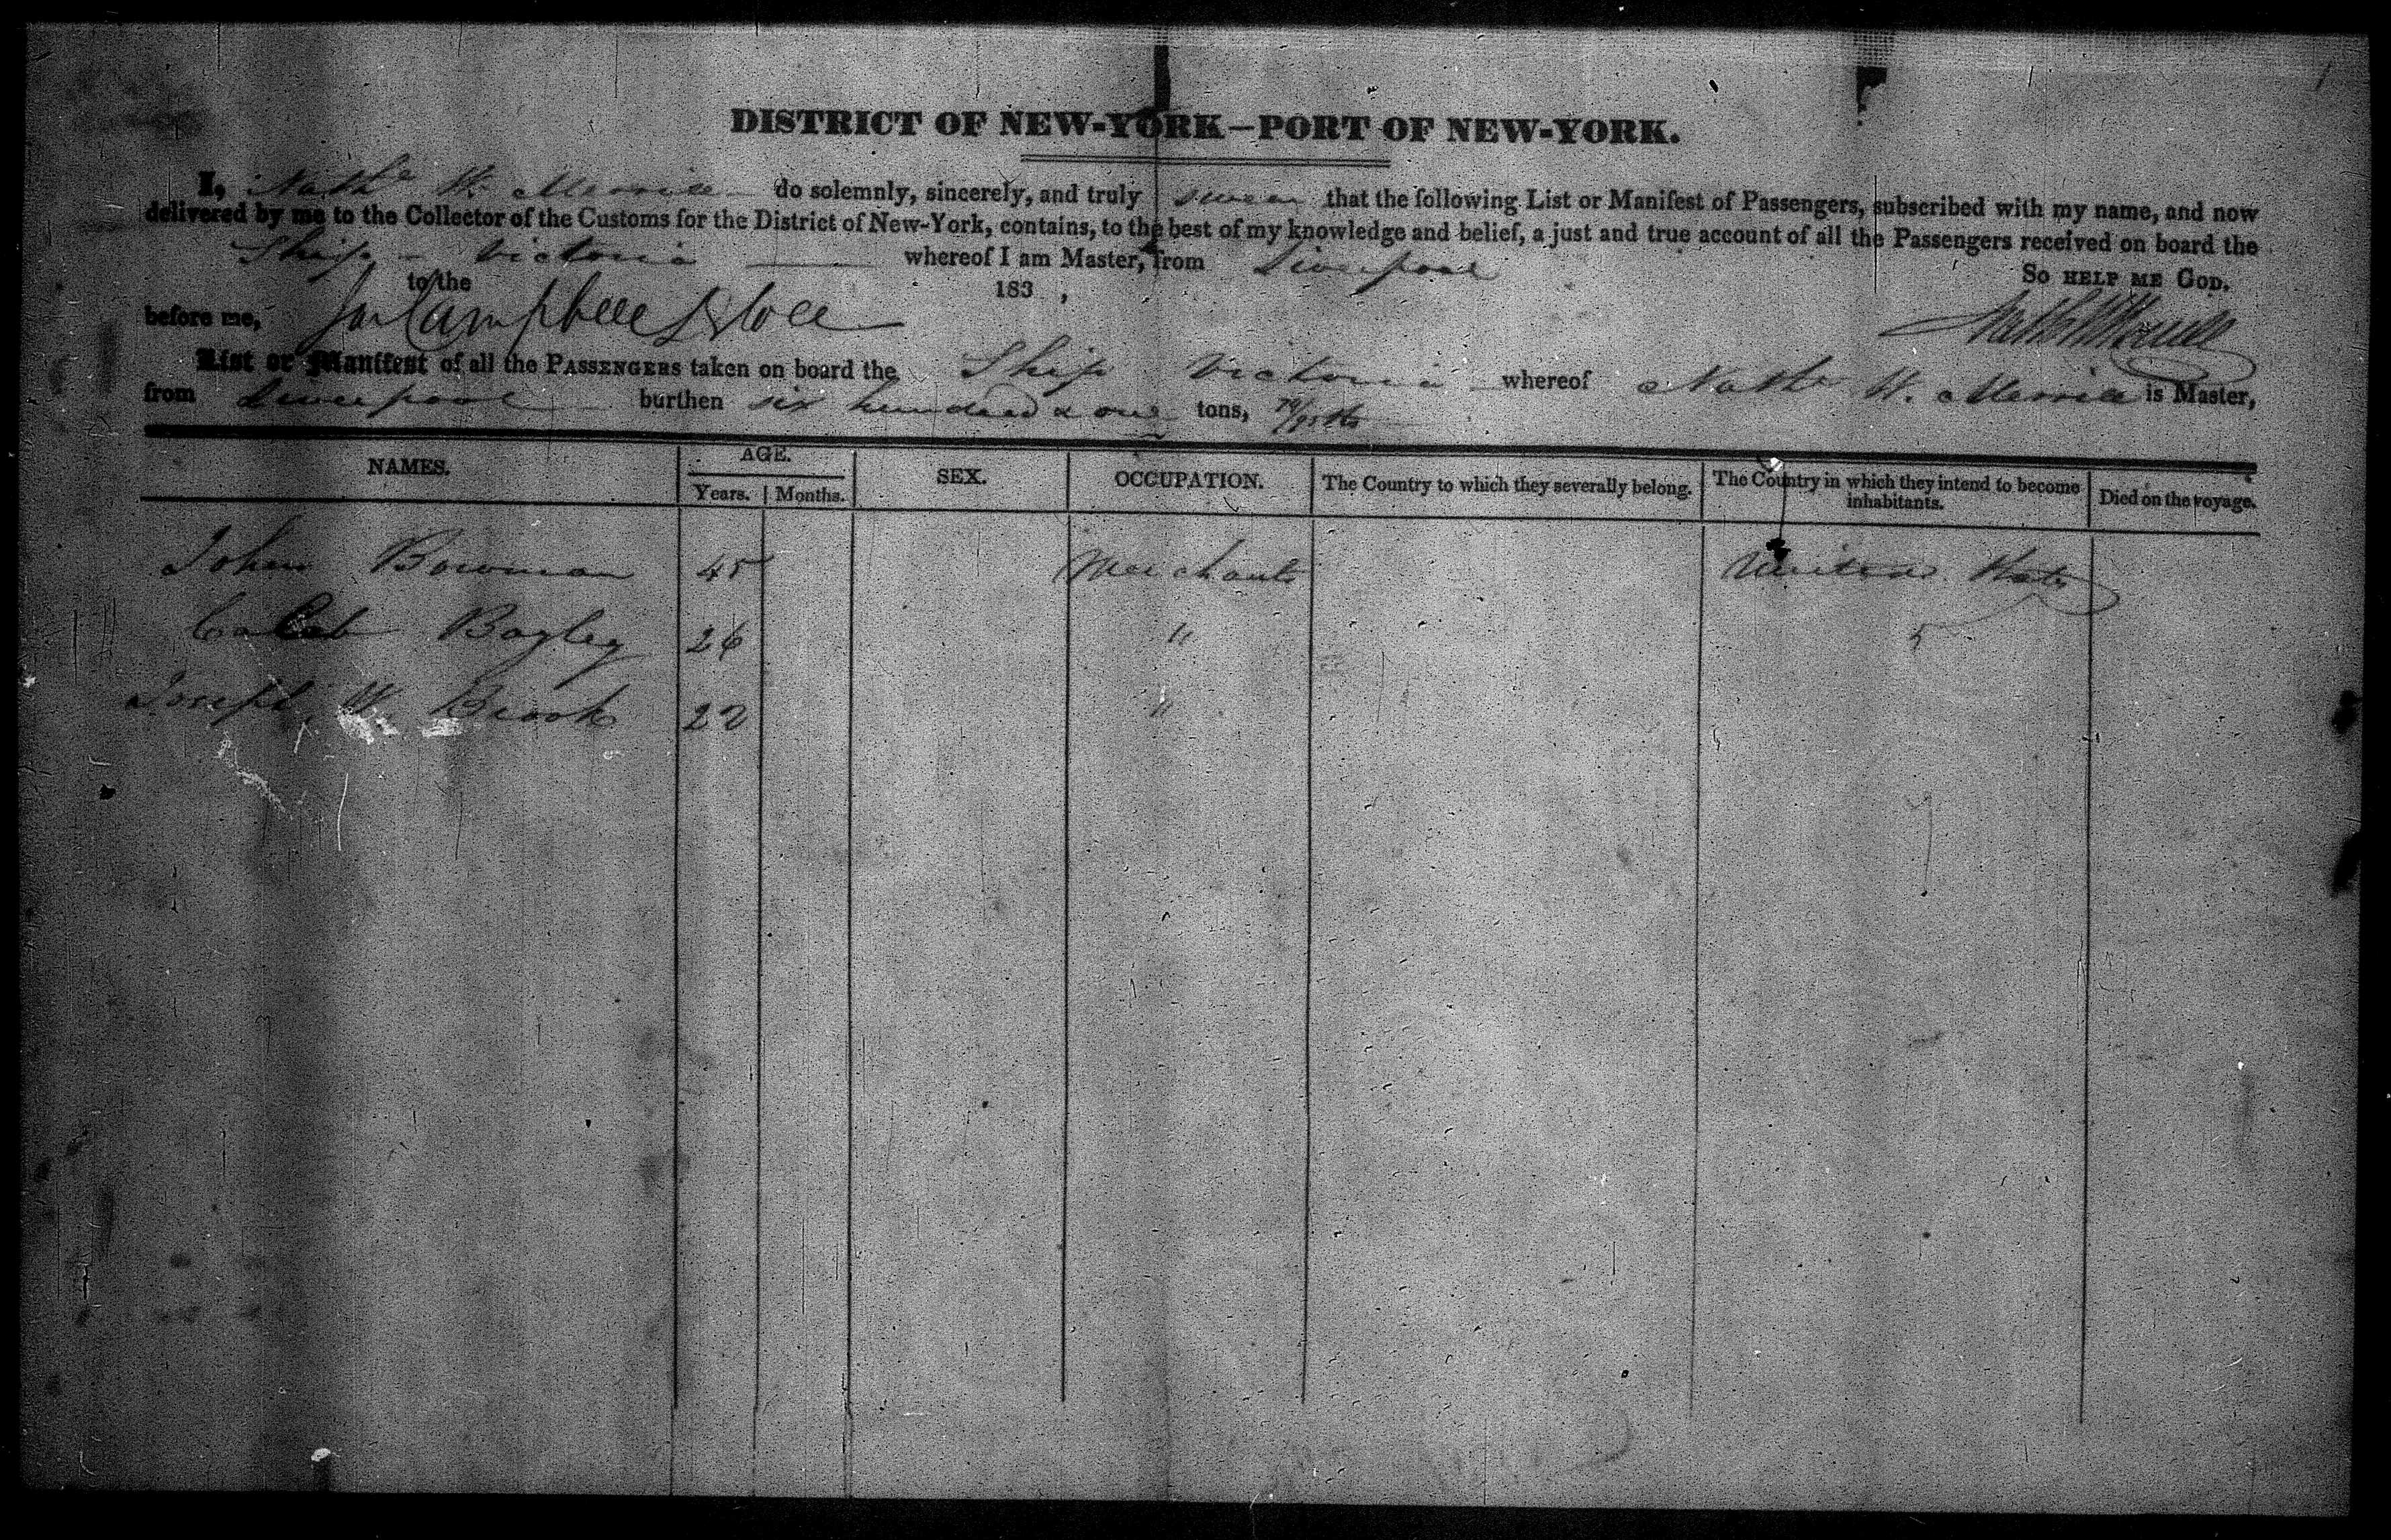 DISTRICT OF NEW-YORK—PORT OF NEW-YORK.
I, Nathl W. Merrill do solemnly, sincerely, and truly swear that the following List or Manifest of Passengers, subscribed with my name, and now
delivered by me to the Collector of the Customs for the District of New-York, contains, to the best of my knowledge and belief, a just and true account of all the Passengers received on board the
Ship - Victoria whereof I am Master, from Liverpool
to the 183 , So HELP ME GOD.
before me, Campbell
List or Manifest of all the PASSENGERS taken on board the Ship Victoria whereof Nathl W. Merrill is Master,
from Liverpool burthen six hundred & one tons,
NAMES. AGE. Years. Months. SEX. OCCUPATION. The Country to which they severally belong. The Country in which they intend to become inhabitants. Died on the voyage.
John Bowman 45 Merchants United States
Caleb Bagley 26 "
Joseph W Brook 22 "